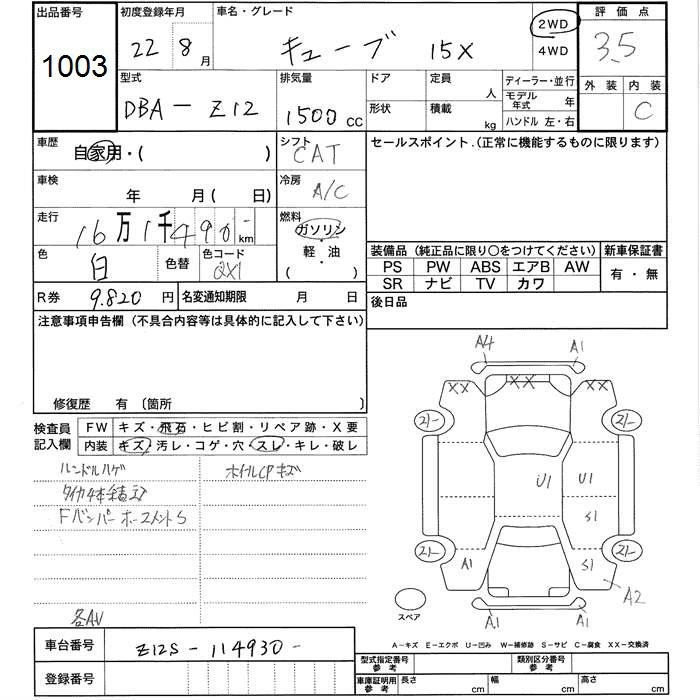 出品番号 初度登録年月 車名・グレード 2WD 評価点
1003 22 8月 キューブ 15X 4WD 3.5
型式 排気量 ドア 定員 人 ディーラー・並行 外装 内装
DBA－Z12 1500 cc 形状 積載 kg モデル年式 年 C
ハンドル 左・右
車歴 自家用・( ) シフト CAT セールスポイント.(正常に機能するものに限ります)
車検 年 月( 日) 冷房 A/C
走行 16万1千490- km 燃料 ガソリン・軽・油 ( )
色 白 色替 色コード QX1
装備品(純正品に限り○をつけてください) 新車保証書
PS PW ABS エアB AW 有・無
SR ナビ TV カワ
R券 9.820円 名変通知期限 月 日 後日品
注意事項申告欄(不具合内容等は具体的に記入して下さい)
修復歴 有 〔箇所 〕
検査員記入欄 FW キズ・飛石・ヒビ割・リペア跡・X要
内装 キズ・汚レ・コゲ・穴・スレ・キレ・破レ
ホイルCPキズ
Fバンパー
A4 A1
XX XX XX
21- 21-
U1 U1
S1
21- 21-
A1 S1
A2
A1 A1
スペア
A－キズ E－エクボ U－凹み W－補修跡 S－サビ C－腐食 XX－交換済
車台番号 Z12S-114930-
登録番号
型式指定番号参考 類別区分番号参考
車庫証明用参考 長さ cm 幅 cm 高さ cm